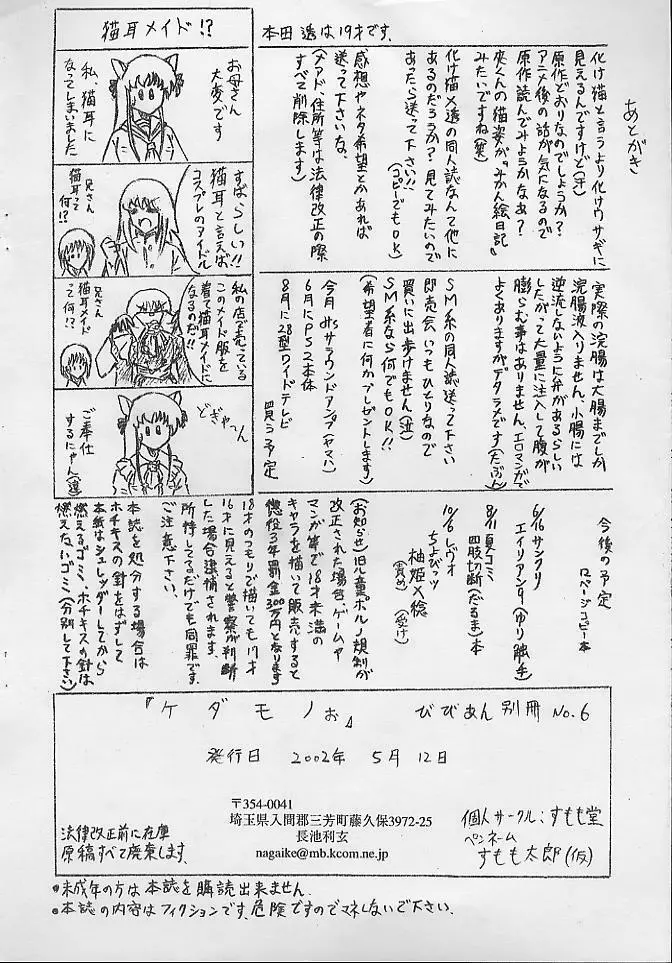 あとがき
化け猫と言うより化けウサギに
見えるんですけど(汗)
原作どおりなのでしょうか?
アニメ後の話が気になるので
原作読んでみようかなぁ?
夾くんの猫姿が『みかん絵日記』
みたいですね(笑)
化け猫×透の同人誌なんて他に
あるのだろうか?見てみたいので
あったら送って下さい!!
(コピーでもOK)
感想やネタ希望とかあれば
送って下さいな。
(メアド、住所等は法律改正の際
すべて削除します)
本田 透は19才です。
猫耳メイド!?
お母さん
大変です
私、猫耳に
なってしまいました
すばらしい!!
猫耳と言えば
コスプレのアイドル
兄さん
猫耳って
何!?
私の店で売っている
このメイド服を
着て猫耳メイドに
なるのだ!!
兄さん
猫耳メイド
って何!?
どぎゃ〜ん
ご奉仕
するにゃん(透)
実際の浣腸は大腸までしか
浣腸液入りません。小腸には
逆流しないように弁があるらしい
したがって大量に注入して腹が
膨らむ事はありません。エロマンガで
よくありますがデタラメです(たぶん)
SM系の同人誌送って下さい
即売会いつもひとりなので
買いに出歩けません(泣)
SM系なら何でもOK!!
(希望者に何かプレゼントします)
今月 msサラウンドアンプ(ヤマハ)
6月にPS2本体
8月に28型ワイドテレビ
買う予定
今後の予定
ロページコピー本
6/16 サンクリ
エイリアン9(ゆり触手)
8/11 夏コミ
四肢切断(だるま)本
10/6 レヴォ
ちょびッツ
柚姫×稔
(責め) (受け)
(お知らせ)旧児童ポルノ規制が
改正された場合、ゲームや
マンガ等で18才未満の
キャラを描いて販売すると
懲役3年罰金300万円となります
18才のつもりで描いても17才
16才に見えると警察が判断
した場合逮捕されます。
所持してるだけでも同罪です。
ご注意下さい。
本誌を処分する場合は
ホチキスの針をはずして
本紙はシュレッダーしてから
燃えるゴミ、ホチキスの針は
燃えないゴミ(分別して下さい)
『ケダモノぉ』 びびあん別冊 No.6
発行日 2002年 5月 12日
〒354-0041
埼玉県入間郡三芳町藤久保3972-25
長池利玄
nagaike@mb.kcom.ne.jp
法律改正前に在庫
原稿すべて廃棄します。
個人サークル:すもも堂
ペンネーム
すもも太郎(仮)
●未成年の方は本誌を購読出来ません。
●本誌の内容はフィクションです。危険ですのでマネしないで下さい。